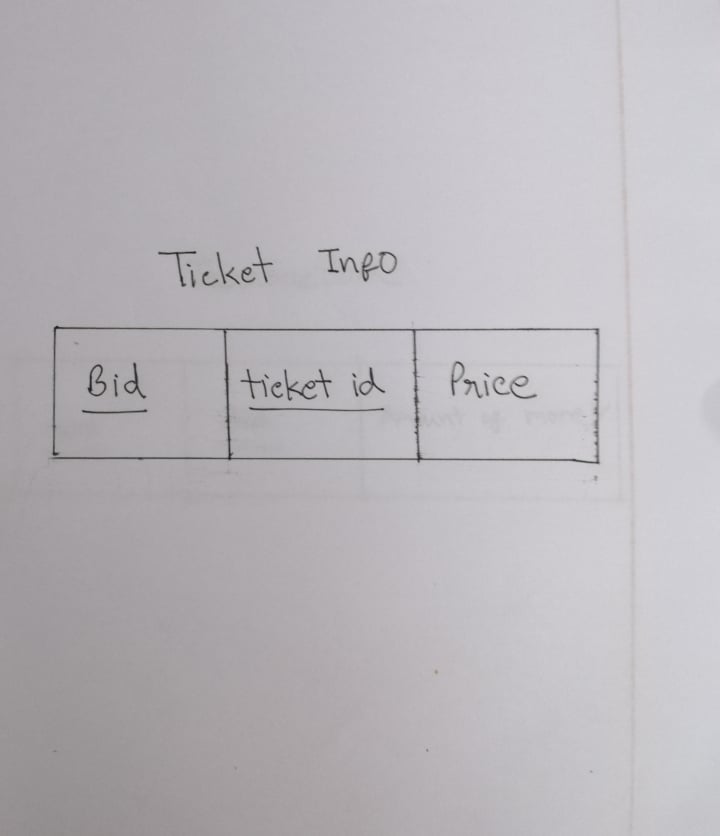 Ticket Info
Bid ticket id Price